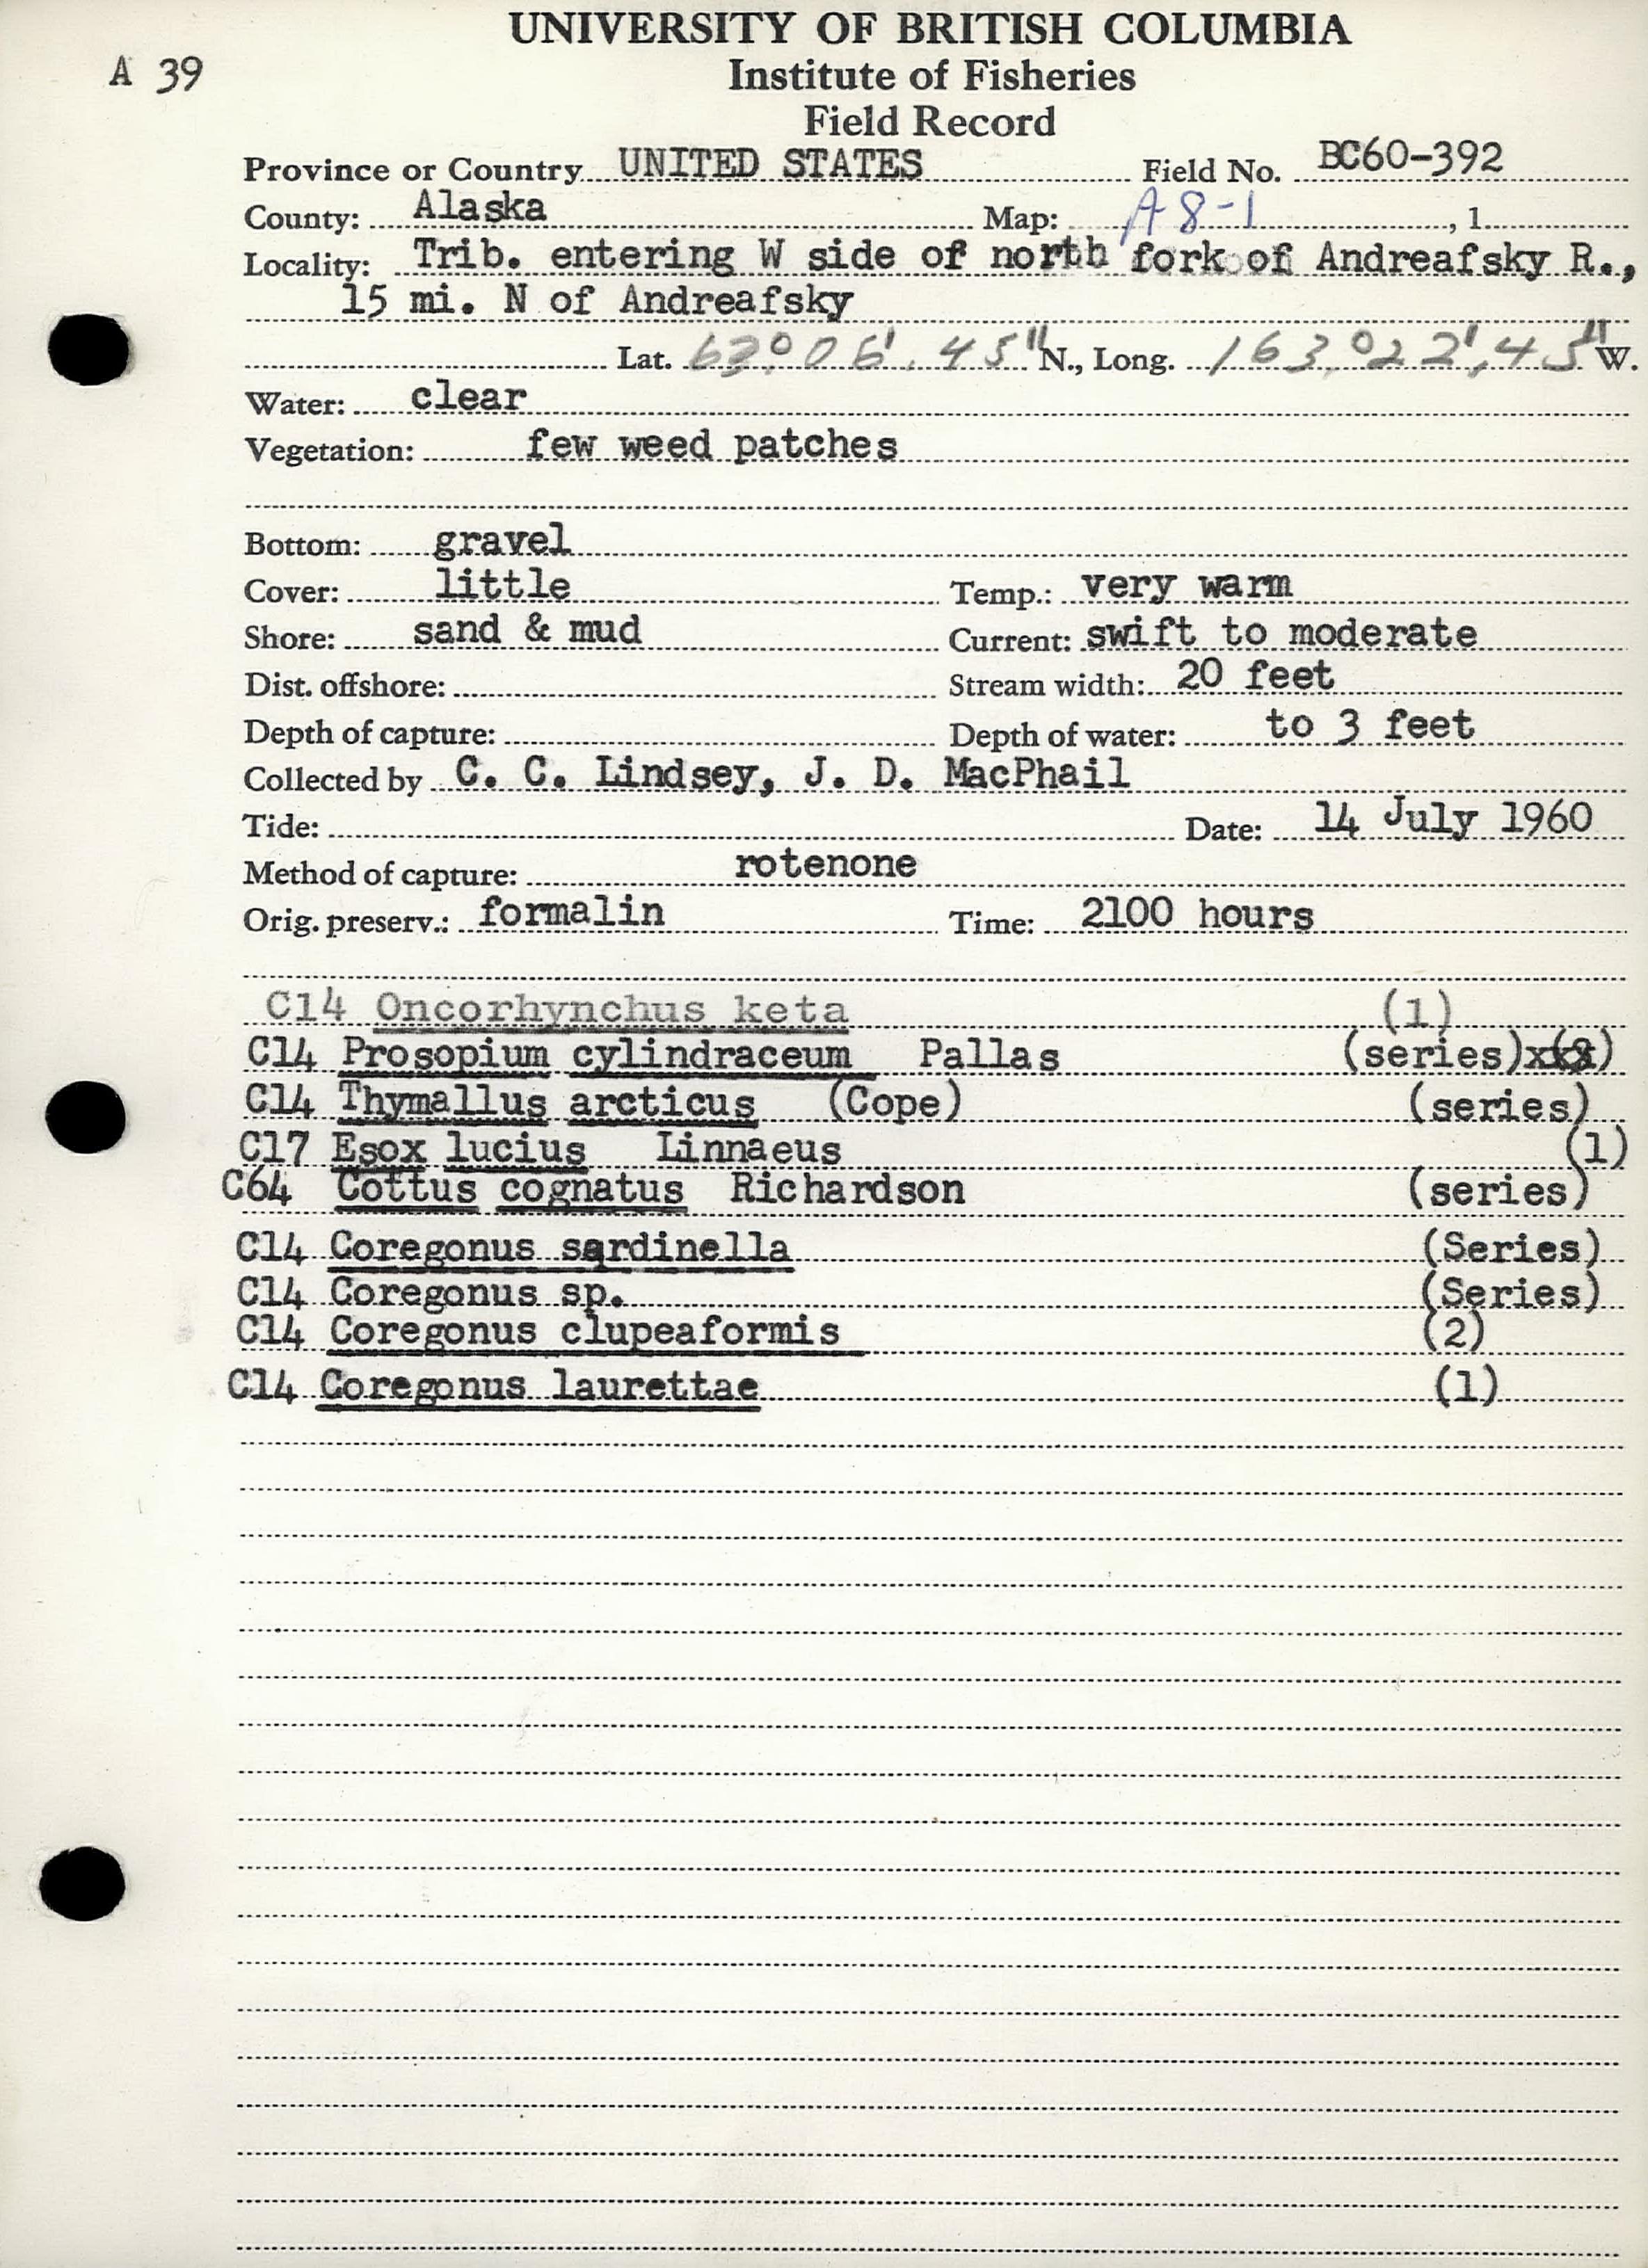 UNIVERSITY OF BRITISH COLUMBIA
A 39
Institute of Fisheries
Field Record
Province or Country UNITED STATES Field No. BC60-392
County: Alaska Map: A8-1 , 1
Locality: Trib. entering W side of north fork of Andreafsky R.,
15 mi. N of Andreafsky
Lat. 62°06'.45"N., Long. 163°22'.45"W.
Water: clear
Vegetation: few weed patches
Bottom: gravel
Cover: little Temp.: very warm
Shore: sand & mud Current: swift to moderate
Dist. offshore: Stream width: 20 feet
Depth of capture: Depth of water: to 3 feet
Collected by C. C. Lindsey, J. D. MacPhail
Tide: Date: 14 July 1960
Method of capture: rotenone
Orig. preserv.: formalin Time: 2100 hours
C14 Oncorhynchus keta (1)
C14 Prosopium cylindraceum Pallas (series)
C14 Thymallus arcticus (Cope) (series)
C17 Esox lucius Linnaeus (1)
C64 Cottus cognatus Richardson (series)
C14 Coregonus sardinella (Series)
C14 Coregonus sp. (Series)
C14 Coregonus clupeaformis (2)
C14 Coregonus laurettae (1)